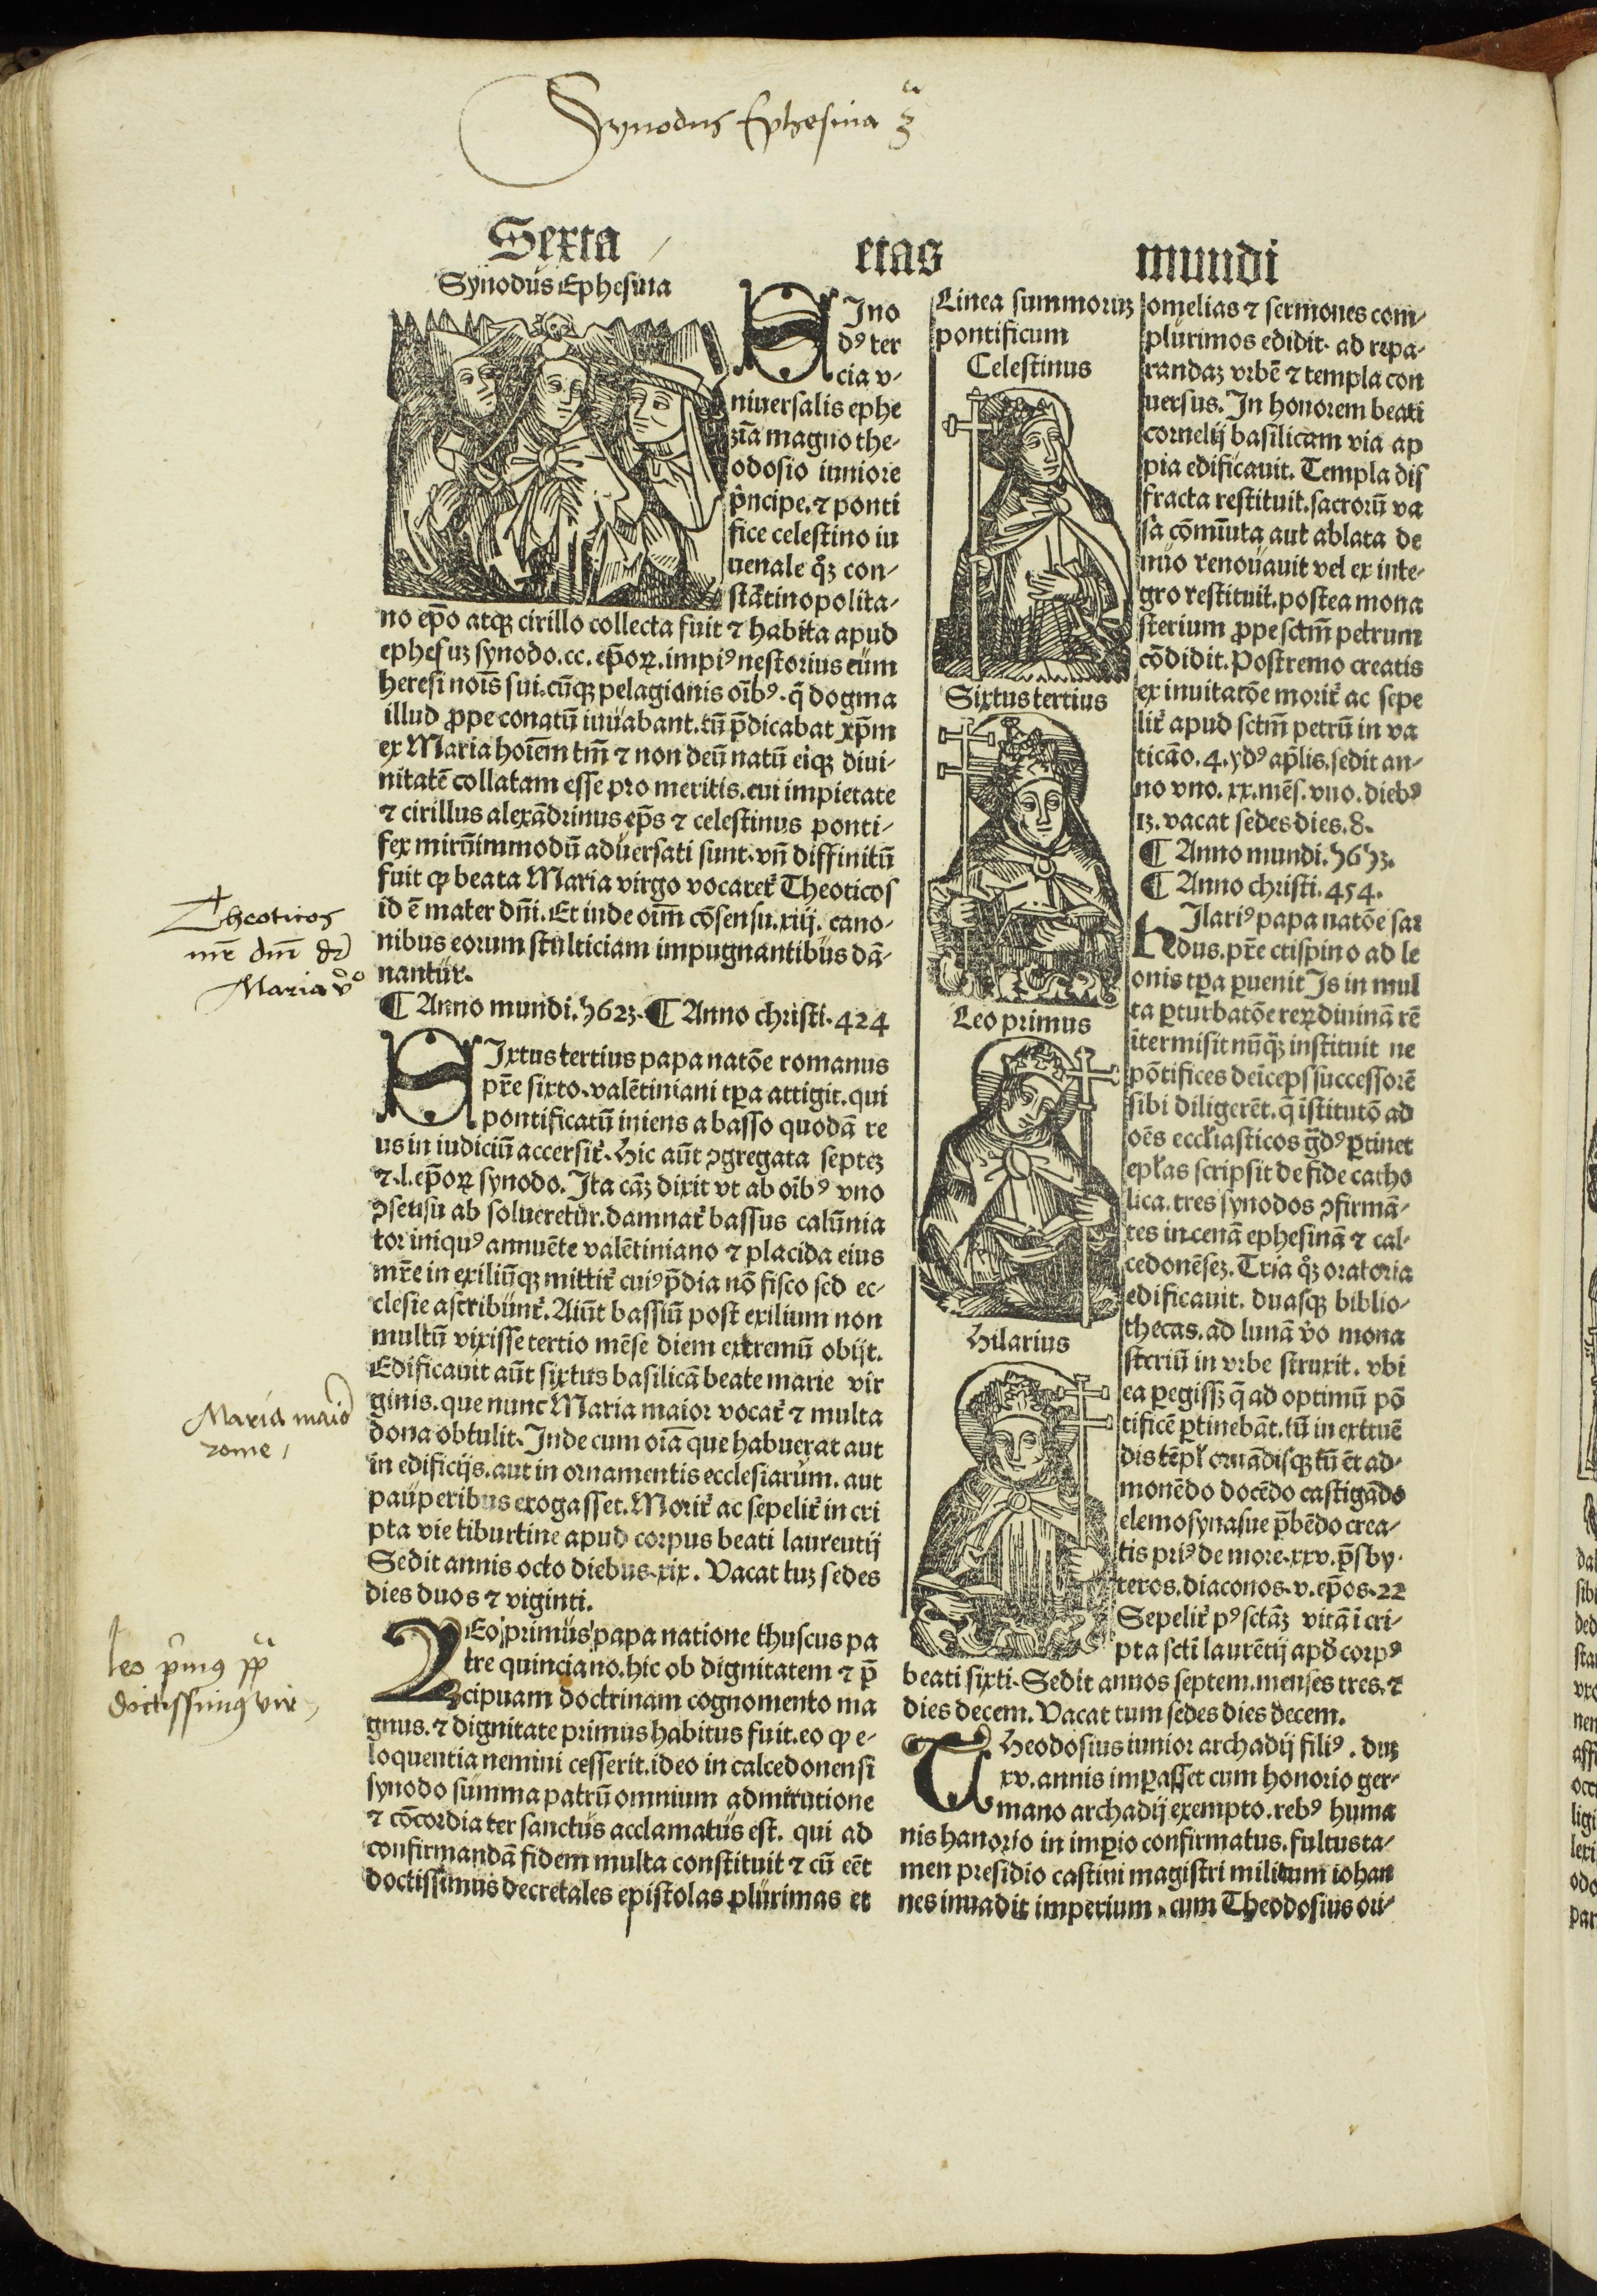 Synodus Ephesina 3a
Sexta etas mundi
Synodus Ephesina
SIno
dꝰ ter
cia v-
niuersalis ephe
zīa magno the-
odosio iuniore
p̄ncipe. ⁊ ponti
fice celestino iu
uenale qꝫ con-
stātinopolita-
no ep̄o atqꝫ cirillo collecta fuit ⁊ habita apud
ephesuꝫ synodo .cc. ep̄oꝝ. impiꝰ nestorius cum
heresi nois̄ sui. cūqꝫ pelagianis oib̄ꝰ. q̄ dogma
illud ꝓpe conatū iuuabant. tū p̄dicabat xp̄m
ex Maria hoiēm tm̄ ⁊ non deū natū eiqꝫ diui-
nitatē collatam esse pro meritis. cui impietate
⁊ cirillus alexādrinus ep̄s ⁊ celestinus ponti-
fex mirūimmodū aduersati sunt. vn̄ diffinitū
fuit ꝙ beata Maria virgo vocaret᷑ Theoticos
id ē mater dn̄i. Et inde oim̄ cōsensu. xiij. cano-
nibus eorum stulticiam impugnantibus dā-
nantur.
¶ Anno mundi. 5623. ¶ Anno christi. 424
SIxtus tertius papa natōe romanus
pr̄e sixto. valētiniani tꝑa attigit. qui
pontificatū iniens a basso quodā re
us in iudiciū accersit᷑. Hic aūt ꝯgregata septeꝫ
⁊. l. ep̄oꝝ synodo. Ita cāꝫ dixit vt ab oib̄ꝰ vno
ꝯsensu ab solueretur. damnat᷑ bassus calūnia
tor iniquꝰ annuēte valētiniano ⁊ placida eius
mr̄e in exiliūqꝫ mittit᷑ cuiꝰ p̄dia nō fisco sed ec-
clesie ascribunt᷑. Aiūt bassiū post exilium non
multū vixisse tertio mēse diem extremū obijt.
Edificauit aūt sixtus basilicā beate marie vir
ginis. que nunc Maria maior vocat᷑ ⁊ multa
dona obtulit. Inde cum oīa que habuerat aut
in edificijs. aut in ornamentis ecclesiarum. aut
pauperibus erogasset. Morit᷑ ac sepelit᷑ in cri
pta vie tiburtine apud corpus beati laurentij
Sedit annis octo diebus. xix. Vacat tuꝫ sedes
dies duos ⁊ viginti.
LEo primus papa natione thuscus pa
tre quinciano. hic ob dignitatem ⁊ p̄
cipuam doctrinam cognomento ma
gnus. ⁊ dignitate primus habitus fuit. eo ꝙ e-
loquentia nemini cesserit. ideo in calcedonensi
synodo summa patrū omnium admiratione
⁊ cōcordia ter sanctus acclamatus est. qui ad
confirmandā fidem multa constituit ⁊ cū eēt
doctissimus decretales epistolas plurimas et
Linea summoruꝫ
pontificum
Celestinus
Sixtus tertius
Leo primus
Hilarius
omelias ⁊ sermones com-
plurimos edidit. ad repa-
randaꝫ vrbē ⁊ templa con
uersus. In honorem beati
cornelij basilicam via ap
pia edificauit. Templa dis
fracta restituit. sacrorū va
sa cōmīuta aut ablata de
nuo renouauit vel ex inte-
gro restituit. postea mona
sterium ꝓpe sctm̄ petrum
cōdidit. Postremo creatis
ex inuitatōe morit᷑ ac sepe
lit᷑ apud sctm̄ petrū in va
ticāo. 4. ydꝰ ap̄lis. sedit an-
no vno. xx. mēs. vno. diebꝰ
13. vacat sedes dies. 8.
¶ Anno mundi. 5653.
¶ Anno christi. 454.
HIlariꝰ papa natōe sar
dus. pr̄e crispino ad le
onis tꝑa ꝑuenit Is in mul
ta ꝑturbatōe reꝝ diuinā rē
itermisit nūqꝫ instituit ne
pōtifices deīceps successorē
sibi diligerēt. q̄ istitutō ad
oēs eccl̄iasticos gd̄ꝰ ꝑtinet
epl̄as scripsit de fide catho
lica. tres synodos ꝯfirmā-
tes incenā ephesinā ⁊ cal-
cedonēseꝫ. Tria qꝫ oratoria
edificauit. duasqꝫ biblio-
thecas. ad lunā v̊o mona
steriū in vrbe struxit. vbi
ea ꝑegissꝫ q̄ ad optimū pō
tificē ꝑtinebāt. tū in exttuē
dis tēpl̄ ornādisqꝫ tū ēt ad-
monēdo docēdo castigādo
elemosynasue p̄bēdo crea-
tis priꝰ de more. xxv. p̄sby-
teros. diaconos. v. ep̄os. 22
Sepelit᷑ pꝰ sctāꝫ vitā ī cri-
pta scti̅ laurētij apd̄ corpꝰ
beati sixti. Sedit annos septem. menses tres. ⁊
dies decem. Vacat tum sedes dies decem.
THeodosius iunior archadij filiꝰ. duꝫ
xv. annis imꝑasset cum honorio ger-
mano archadij exempto. rebꝰ huma
nis hanorio in imꝑio confirmatus. fultus ta-
men presidio castini magistri militum iohan
nes inuadit imperium. cum Theodosius ori-
Theoticos
mr̄ dn̄i dr̄
Maria v̊o
Maria maior
rome
Leo p̄mꝰ pp̄a
doctissimꝰ vir